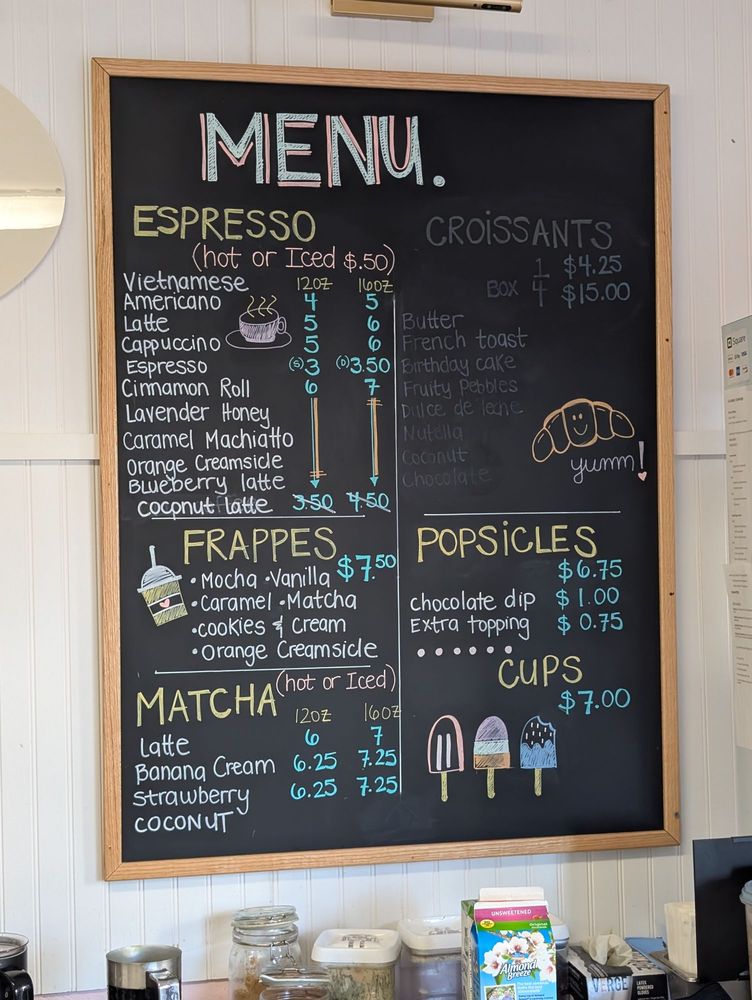 MENU.
ESPRESSO
(hot or Iced $.50)
Vietnamese 12oz 16oz
Americano 4 5
Latte 5 6
Cappuccino 5 6
Espresso (S) 3 (D) 3.50
Cinnamon Roll 6 7
Lavender Honey
Caramel Machiatto
Orange Creamsicle
Blueberry latte
coconut latte 3.50 4.50
CROISSANTS
1 $4.25
BOX 4 $15.00
Butter
French toast
Birthday cake
Fruity Pebbles
Dulce de leche
Nutella
Coconut
Chocolate
yumm!
FRAPPES
$7.50
•Mocha •Vanilla
•Caramel •Matcha
•cookies & Cream
•Orange Creamsicle
POPSICLES
$6.75
chocolate dip $1.00
Extra topping $0.75
CUPS
$7.00
MATCHA (hot or Iced)
12oz 16oz
Latte 6 7
Banana Cream 6.25 7.25
Strawberry 6.25 7.25
COCONUT
Square
UNSWEETENED
Original
Almond
Breeze
VERGE
LATEX
POWDERED
GLOVES